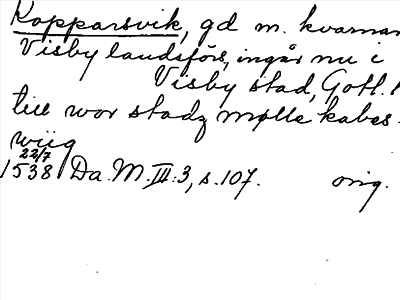 Kopparsvik, gd m. kvarnar
Visby landsförs, ingår nu i
Visby stad, Gotl. l
till wor stadz mølle kabes-
wiig
22/7
1538 Da. M. III:3, s. 107. orig.